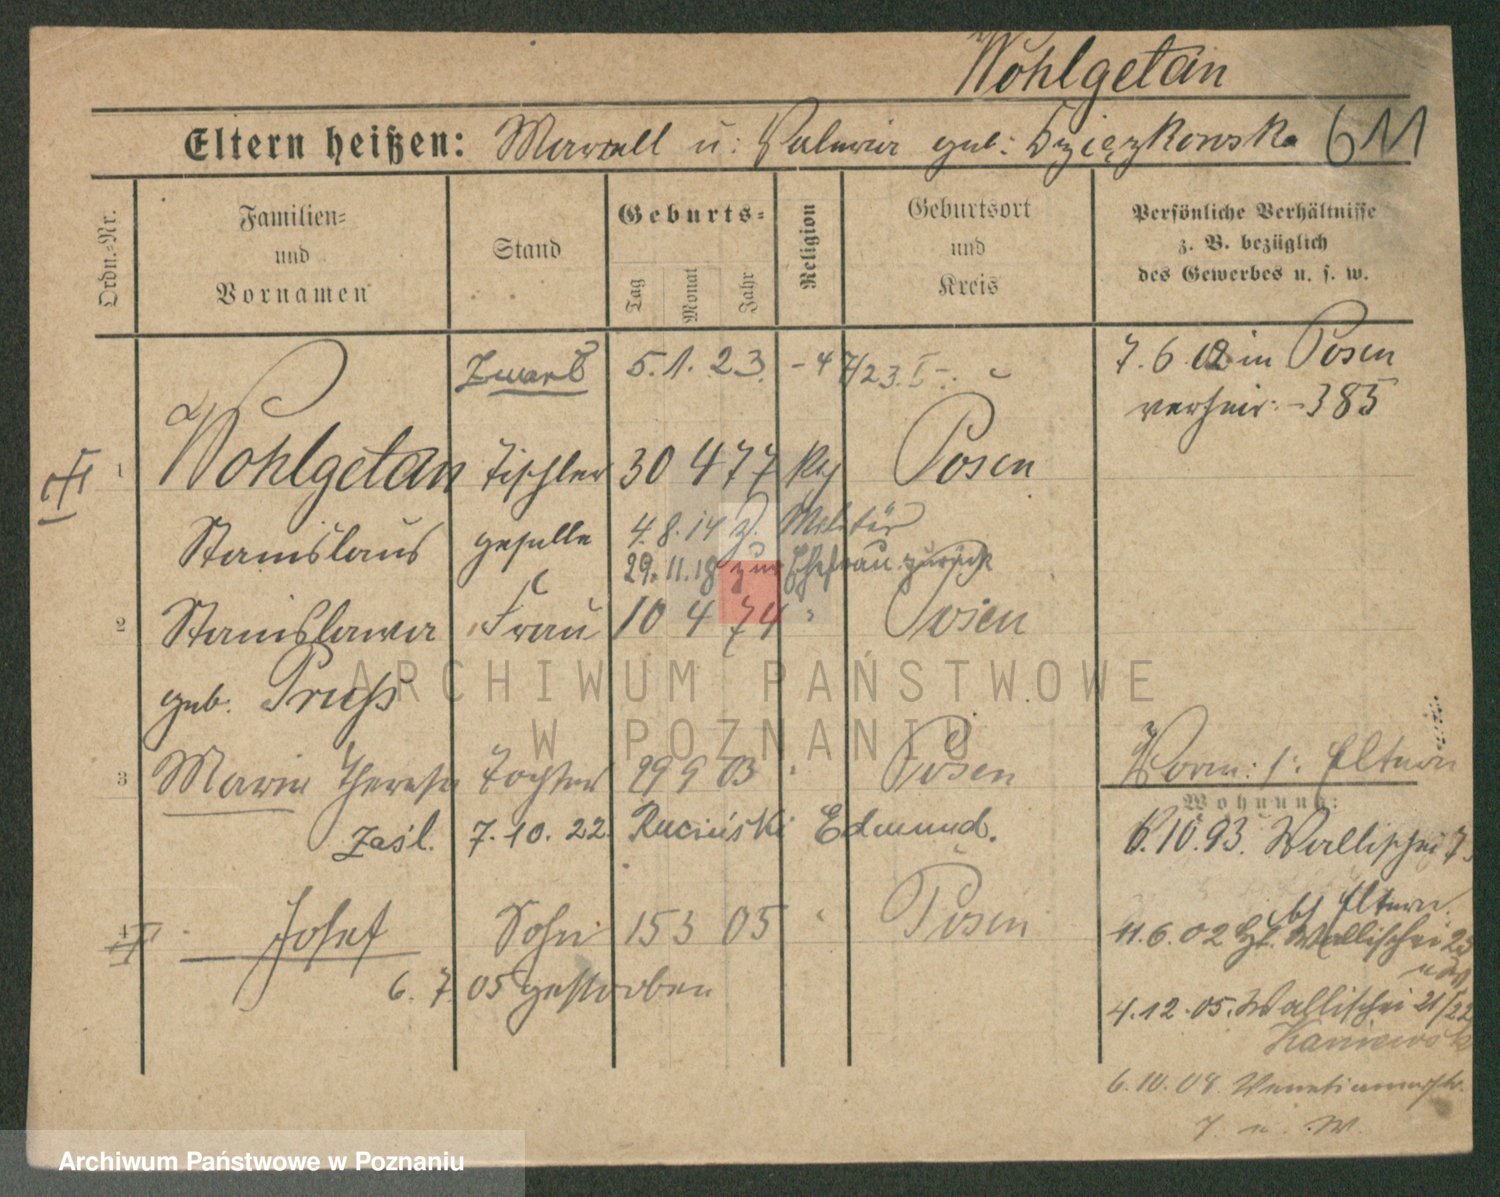 Wohlgetan
Eltern heißen: Marzell u: Valeria geb: Dzięczkowska 611
Ordn.-Nr.
Familien- und Vornamen
Stand
Geburts-
Tag Monat Jahr
Religion
Geburtsort und Kreis
Persönliche Verhältnisse z. B. bezüglich des Gewerbes u. s. w.
Zmarł 5. 1. 23. -4 7/23. I
7. 6 02 in Posen
verheir: -385
1 Wohlgetan Tischler 30 4 77 Posen
Stanislaus geselle 4. 8. 14 z. Militär
29. 11. 18 zur Ehefrau zurück
2 Stanislawa Frau 10 4 74 " Posen
geb. Pruß
3 Marie Therese Tochter 29 9 03 " Posen
Vorm: s: Eltern
Wohnung:
zasl. 7. 10. 22. Ruciński Edmund.
6. 10. 93. Wallischei 7.
4 Josef Sohn 15 3 05 " Posen
bf Eltern
11. 6. 02 Wallischei 23
6. 7. 05 gestorben
4. 12. 05. Wallischei 21/22
6. 10. 08 Venetianerstr.
7
ARCHIWUM PAŃSTWOWE
W POZNANIU
Archiwum Państwowe w Poznaniu